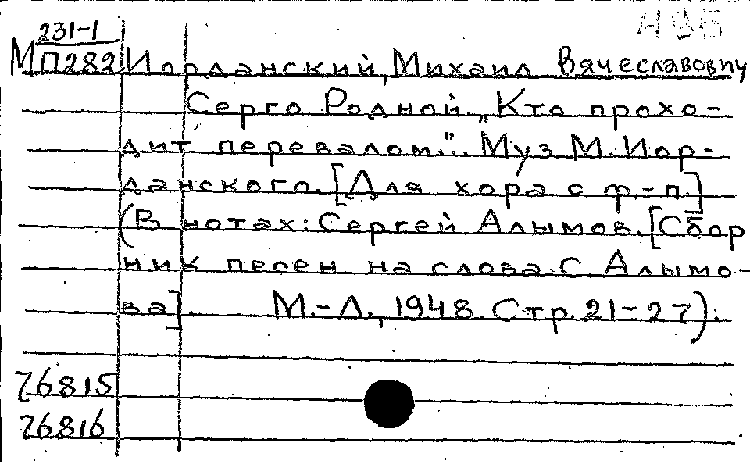 231-1
МП282 Иорданский, Михаил Вячеславович
Серго Родной „Кто прохо-
дит перевалом.". Муз. М. Иор-
данского. [Для хора с ф.-п.]
(В нотах: Сергей Алымов. [Сбор
ник песен на слова С. Алымо-
ва]. М.-Л., 1948. Стр. 21-27).
76815
76816